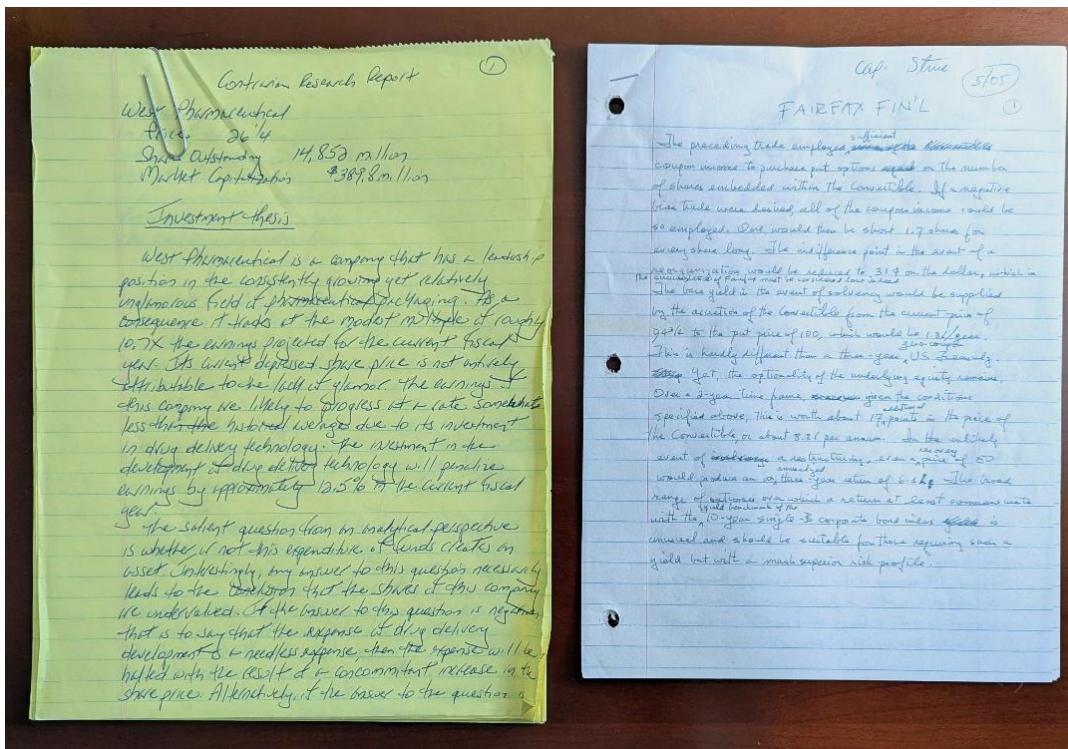 ①
Contrarian Research Report
West Pharmaceutical
Price 26 1/4
Shares Outstanding 14,852 million
Market Capitalization $389.8 million
Investment thesis
West Pharmaceutical is a company that has a leadership
position in the consistently growing yet relatively
unglamorous field of pharmaceutical packaging. As a
consequence it trades at the modest multiple of roughly
10.7X the earnings projected for the current fiscal
year. Its current depressed share price is not entirely
attributable to the lack of glamor. The earnings of
this company are likely to progress at a rate somewhat
less than the historical averages due to its investment
in drug delivery technology. The investment in the
development of drug delivery technology will penalize
earnings by approximately 12.5% in the current fiscal
year.
The salient question from an analytical perspective
is whether or not this expenditure of funds creates an
asset. Interestingly, any answer to this question necessarily
leads to the conclusion that the shares of this company
are undervalued. If the answer to this question is negative
that is to say that the expense of drug delivery
development is a needless expense, then the expense will be
halted with the result of a concommitant increase in the
share price. Alternatively, if the answer to the question is
Cap. Struc
5/05
①
FAIRFAX FIN'L
The preceding trade employed sufficient
coupon income to purchase put options on the number
of shares embedded within the Convertible. If a negative
bias trade were desired, all of the coupon income could be
so employed. One would then be short 1.7 shares for
every share long. The indifference point in the event of a
reorganization would be reduced to 31¢ on the dollar, which in
the circumstances of Fairfax must be considered low indeed
The base yield in the event of solvency would be supplied
by the accretion of the Convertible from the current price of
94 3/4 to the put price of 100, which would be 1.8%/year.
This is hardly different than a three-year, zero coupon US Treasury.
Yet, the optionality of the underlying equity remains.
Over a 2-year time frame, given the conditions
specified above, this is worth about 17 points in the price of
the Convertible, or about 8.8% per annum. In the unlikely
event of a restructuring, even a recovery price of 50
would produce an annualized three-year return of 6.6%. The broad
range of outcomes over which a return at least commensurate
with the yield benchmark of the 10-year single-B corporate bond index is
unusual and should be suitable for those requiring such a
yield but with a much superior risk profile.